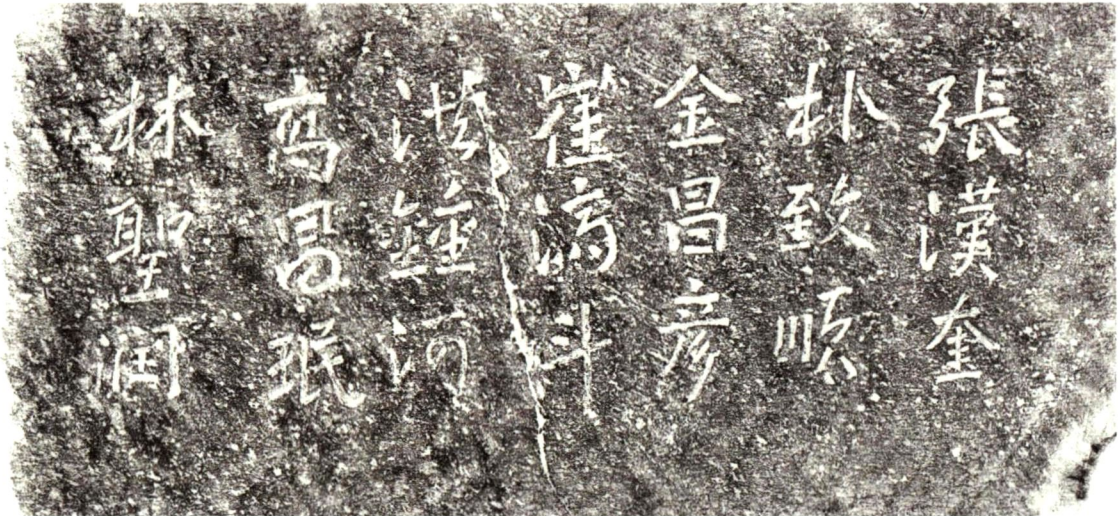 張漢奎
朴致順
金昌彦
崔斗
河
高昌珉
林聖潤